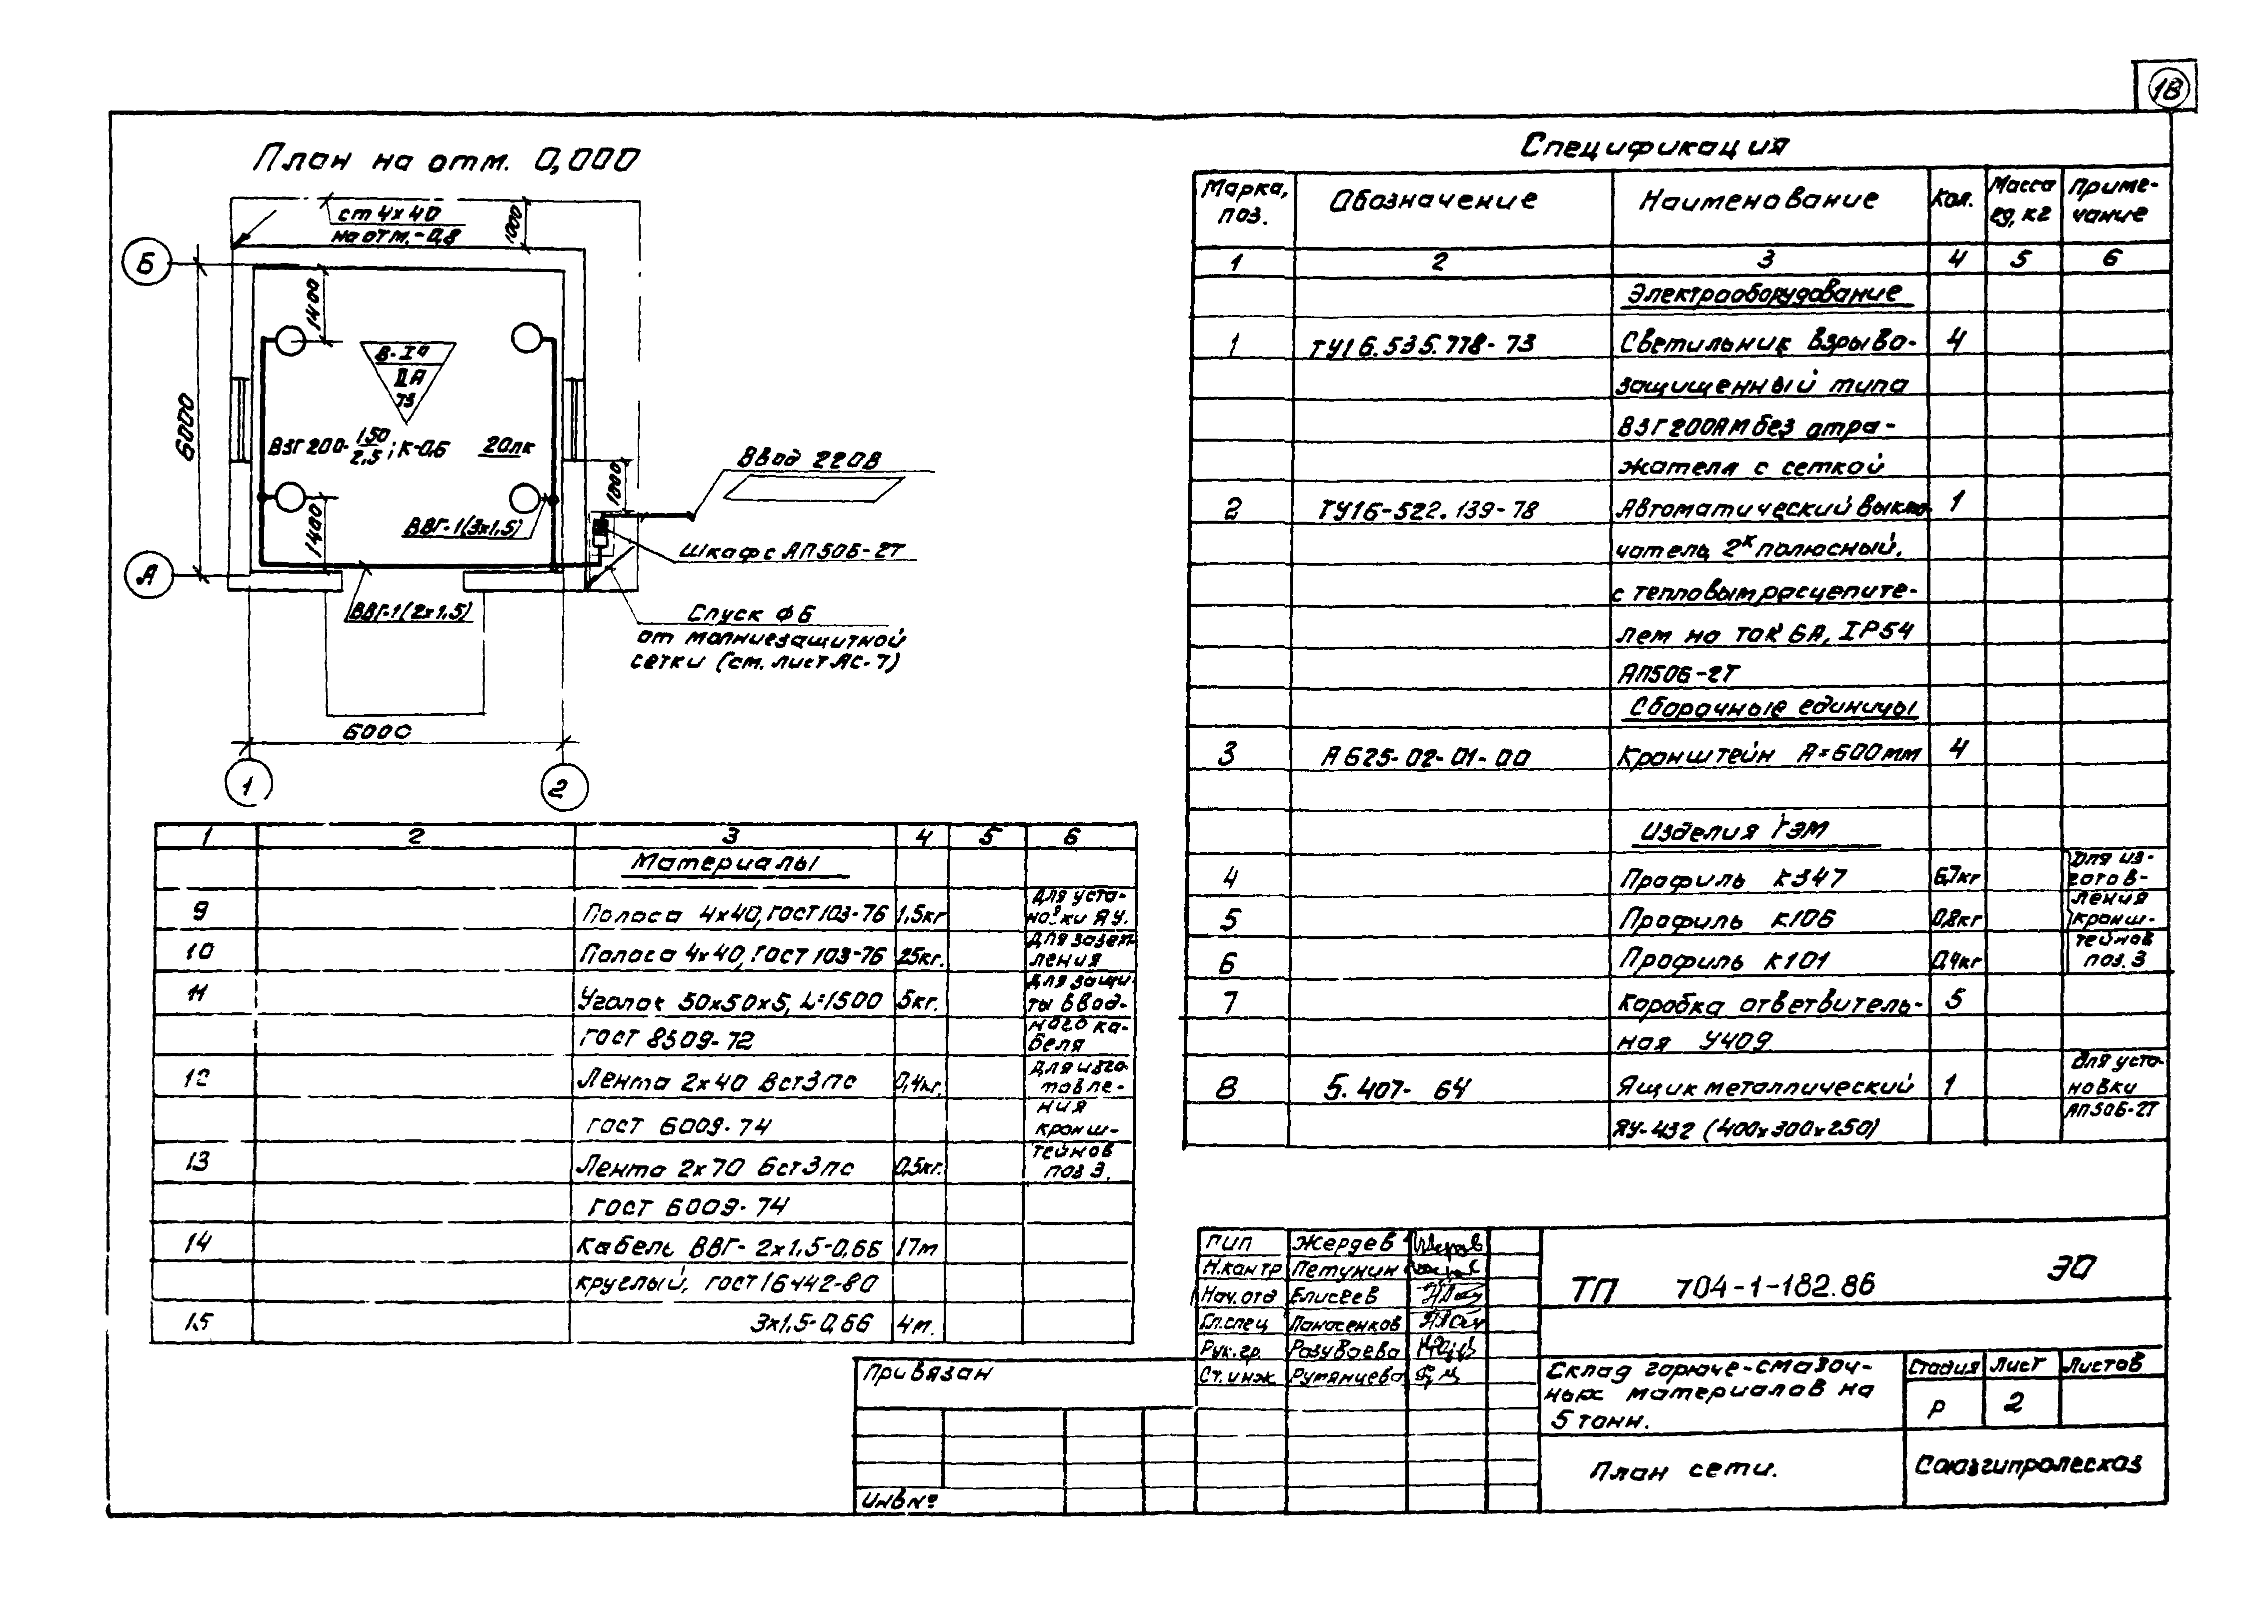 18
План на отм. 0,000
ст 4х40
на отм. -0,8
1000
Б
1400
В-Iа
IIА
Т3
6000
ВЗГ200- 150/2,5 ; К-0,6 20лк
Ввод 220В
1000
ВВГ-1(3х1,5)
1400
Шкаф с АП50Б-2Т
А
ВВГ-1(2х1,5)
Спуск Ф6
от молниезащитной
сетки (см. лист АС-7)
6000
1 2
Спецификация
Марка, поз. Обозначение Наименование Кол. Масса ед, кг Приме-чание
1 2 3 4 5 6
Электрооборудование
1 ТУ16.535.778-73 Светильник взрыво- 4
защищенный типа
ВЗГ200АМ без отра-
жателя с сеткой
2 ТУ16-522.139-78 Автоматический выклю- 1
чатель 2х полюсный,
с тепловым расцепите-
лем на ток 6А, IP54
АП50Б-2Т
Сборочные единицы
3 А625-02-01-00 Кронштейн А=600мм 4
Изделия ГЭМ
4 Профиль К347 6,7кг Для из-
готов-
ления
5 Профиль К106 0,8кг кронш-
тейнов
6 Профиль К101 0,4кг поз. 3
7 Коробка ответвитель- 5
ная У409
8 5.407-64 Ящик металлический 1 Для уста-
новки
ЯУ-432 (400х300х250) АП50Б-2Т
1 2 3 4 5 6
Материалы
9 Полоса 4х40, ГОСТ 103-76 1,5кг Для уста-
новки ЯУ.
10 Полоса 4х40, ГОСТ 103-76 25кг. Для зазем-
ления
11 Уголок 50х50х5, L=1500 5кг. Для защи-
ты ввод-
ГОСТ 8509-72 ного ка-
беля
12 Лента 2х40 Вст3пс 0,4кг. Для изго-
товле-
ГОСТ 6009-74 ния
кронш-
13 Лента 2х70 Бст3пс 0,5кг. тейнов
поз 3.
ГОСТ 6009-74
14 Кабель ВВГ-2х1,5-0,66 17м
круглый, ГОСТ 16442-80
15 3х1,5-0,66 4м.
ГИП Жердев
Н.контр Петунин
Нач.отд Елисеев
Гл.спец Панасенков
Рук.гр. Разуваева
Ст.инж Румянцева
Привязан
Инв№
ТП 704-1-182.86 ЭО
Склад горюче-смазоч-
ных материалов на
5 тонн.
Стадия Лист Листов
Р 2
План сети.
Союзгипролесхоз